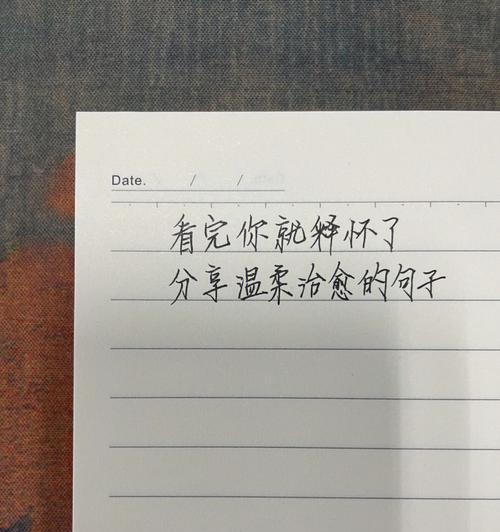 Date. / /
看完你就释怀了
分享温柔治愈的句子